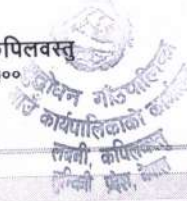 कपिलवस्तु
००
शुद्धोधन गाउँपालिका
गाउँ कार्यपालिकाको कार्यालय
लबनी, कपिलवस्तु
लुम्बिनी प्रदेश, नेपाल